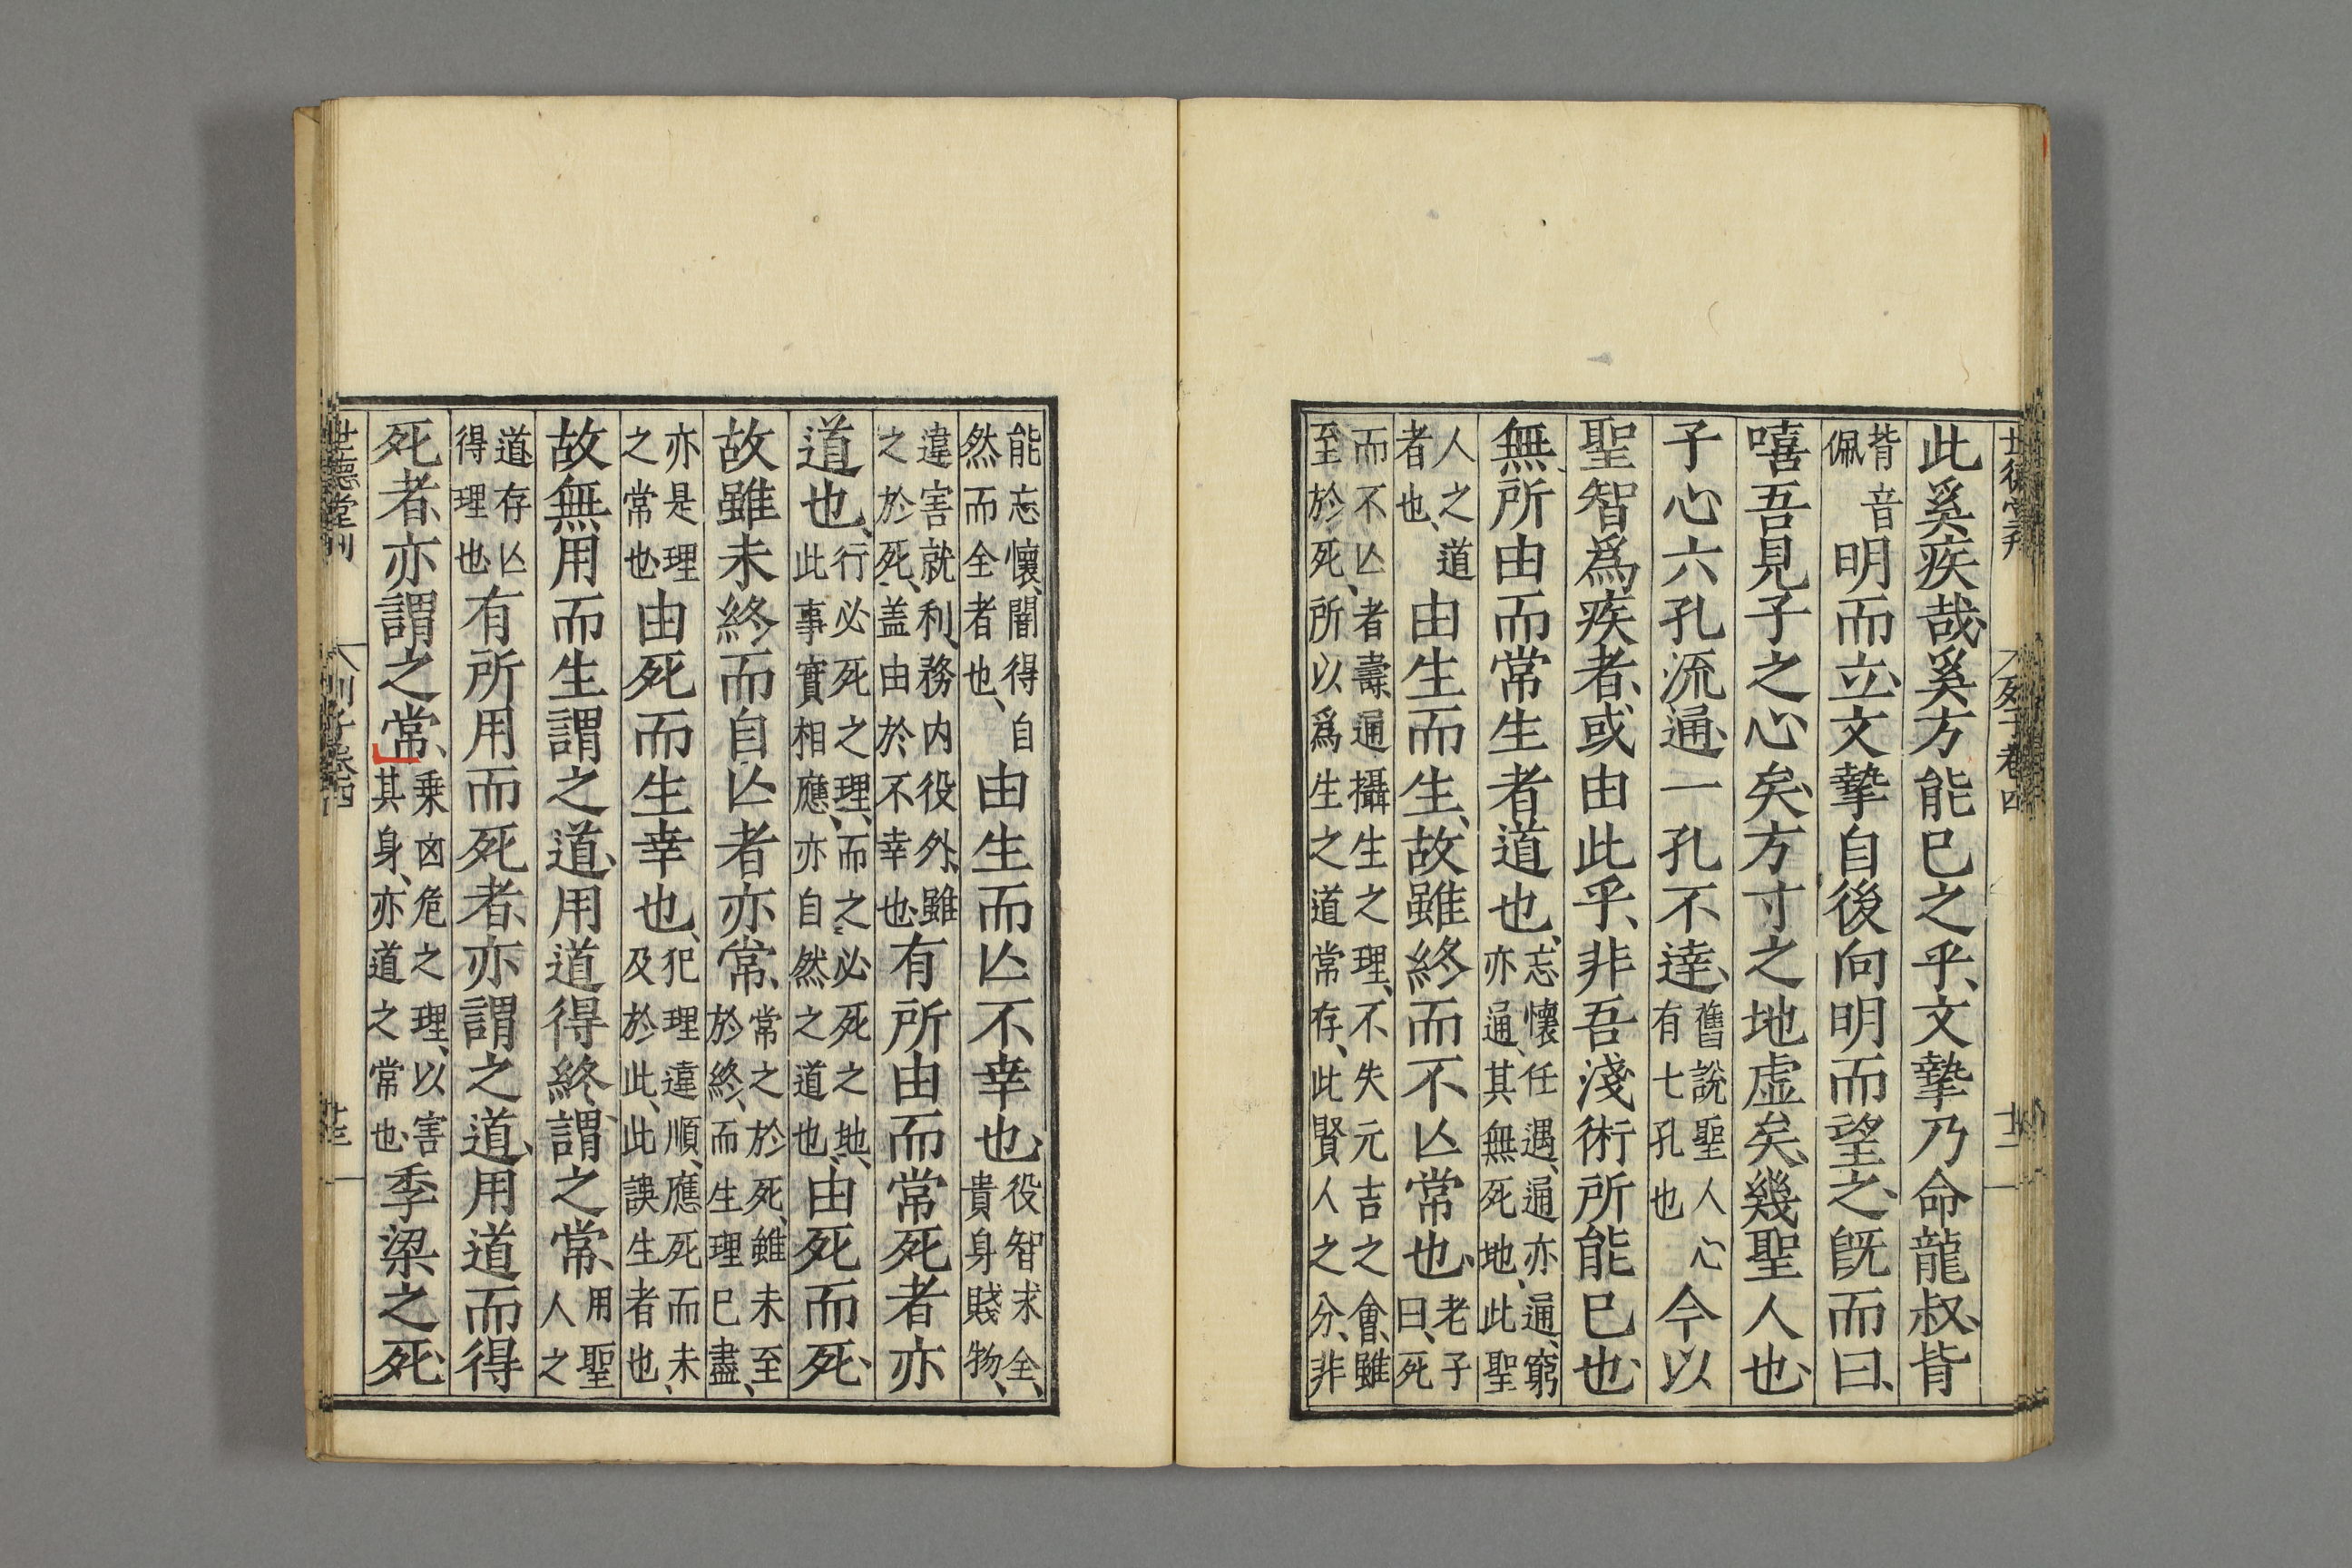 此奚疾哉、奚方能已之乎、文摯乃命龍叔、背
背音佩明而立、文摯自後向明而望之、旣而曰、
嘻吾見子之心矣、方寸之地虛矣、幾聖人也、
子心六孔流通、一孔不達、舊說聖人心有七孔也今以
聖智爲疾者、或由此乎、非吾淺術所能已也、
無所由而常生者道也、忘懷任遇、通亦通、窮亦通、其無死地、此聖
人之道者也、由生而生、故雖終而不亾常也、老子曰、死
而不亾者壽、通攝生之理、不失元吉之會、雖至於死、所以爲生之道常存、此賢人之分、非
能忘懷、闇得自然而全者也、由生而亾不幸也、役智求全、貴身賤物、
違害就利、務内役外、雖之於死、盖由於不幸也、有所由而常死者亦
道也、行必死之理、而之必死之地、此事實相應、亦自然之道也、由死而死、
故雖未終而自亾者亦常、常之於死、雖未至於終、而生理已盡、
亦是理之常也、由死而生幸也、犯理違順、應死而未、及於此、此誤生者也、
故無用而生謂之道、用道得終、謂之常、用聖人之
道、存亾得理也、有所用而死者、亦謂之道、用道而得
死者、亦謂之常、乗凶危之理、以害其身、亦道之常也、季梁之死、
世德堂刊
列子卷四